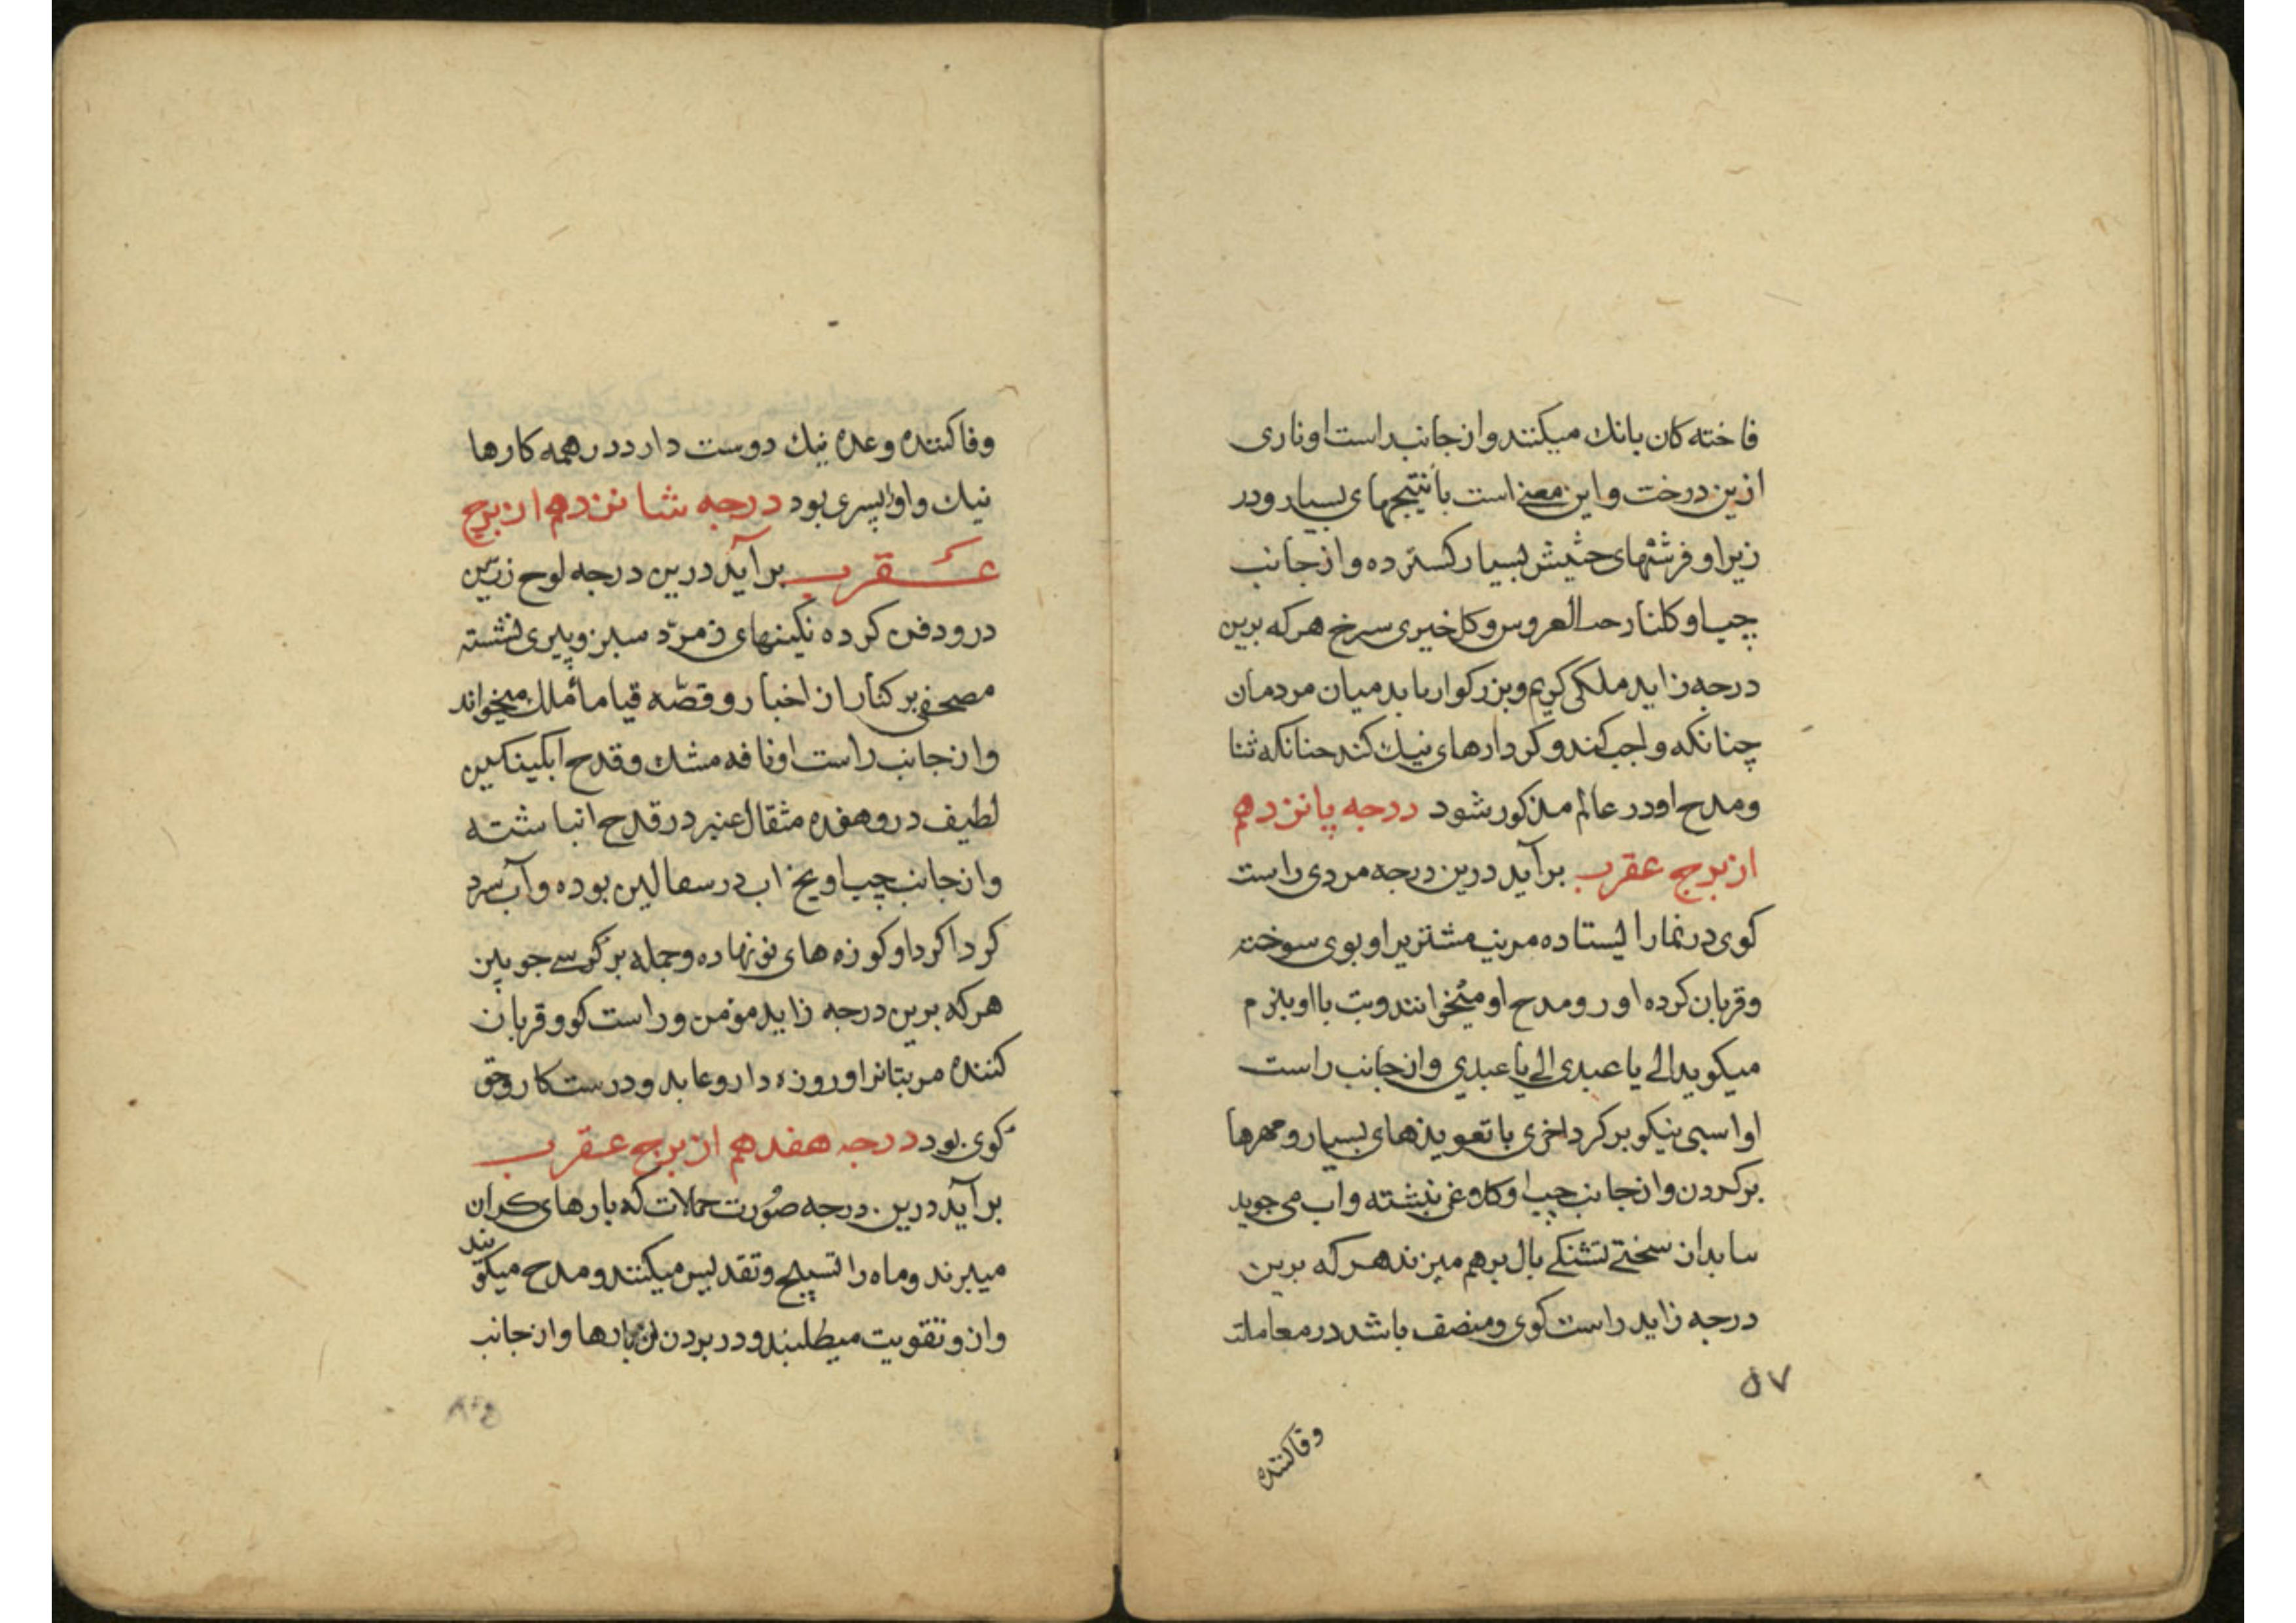 فاخته کان بانك میکنند و از جانب راست او ناری
ازین درخت و این معنے است با نتیجهای بسیار و در
زیر او فرشهای حشیش بسیار کسترده و از جانب
چپ او کلنار العروس و کل خیری سرخ هر که برین
درجه زاید ملکی کریم و بزرکوار باید میان مردمان
چنانکه واجب کند و کردارهای نیك کند جنانکه ثنا
و مدح او در عالم مذکور شود درجه پانزدهم
از برج عقرب برآید درین درجه مردی راست
کوی در نماز ایستاده مر بت مشتریرا و بوی سوخته
و قربان کرده او رو مدح او میخوانند و بت با او بلزم
میکوید الی یا عبدی الی یا عبدی و از جانب راست
او اسبی نیکو بر کرد با تعویذهای بسیار و مهرها
بر کردن و از جانب چپ او کلاغی نشسته و آب می جوید
از سختے تشنکے بال برهم میزند هر که برین
درجه زاید راست کوی و منصف باشد در معاملت
٥٧
وفا کننده
وفا کننده وعده نیك دوست دارد در همه کارها
نیك و او پسری بود درجه شانزدهم از برج
عقرب برآید درین درجه لوح زرّین
درو دفن کرده نکینهای زمرّد سبز و پیری نشسته
مصحفی بر کنار از اخبار و قصّه میخواند
و از جانب راست او نافه مشك و قدح ابکینکین
لطیف درو هفده مثقال عنبر در قدح انباشته
و از جانب چپ او یخ آب در سفالین بوده و آب سرد
کرداکرد او کوزه های نو نهاده و جمله بر کرسے جوبین
هر که برین درجه زاید مؤمن و راست کو و قربان
کننده مر بتانرا و روزه دار و عابد و درست کار و حق
کوی بود درجه هفدهم از برج عقرب
برآید درین درجه صُورت حمالان که بارهای کران
میبرند و ماه را تسبیح و تقدیس میکنند و مدح میکویند
و ازو تقویت میطلبند و در بردن آن بارها و از جانب